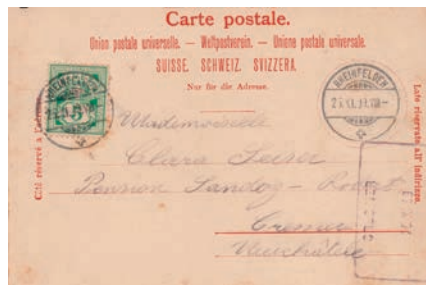 Carte postale.
Union postale universelle. — Weltpostverein. — Unione postale universale.
SUISSE. SCHWEIZ. SVIZZERA.
Nur für die Adresse.
Côté réservé à l'adresse.
Lato riservato all' indirizzo.
RHEINFELDEN
5
Mademoiselle
Clara
Pension Sandoz -
Neuchâtel